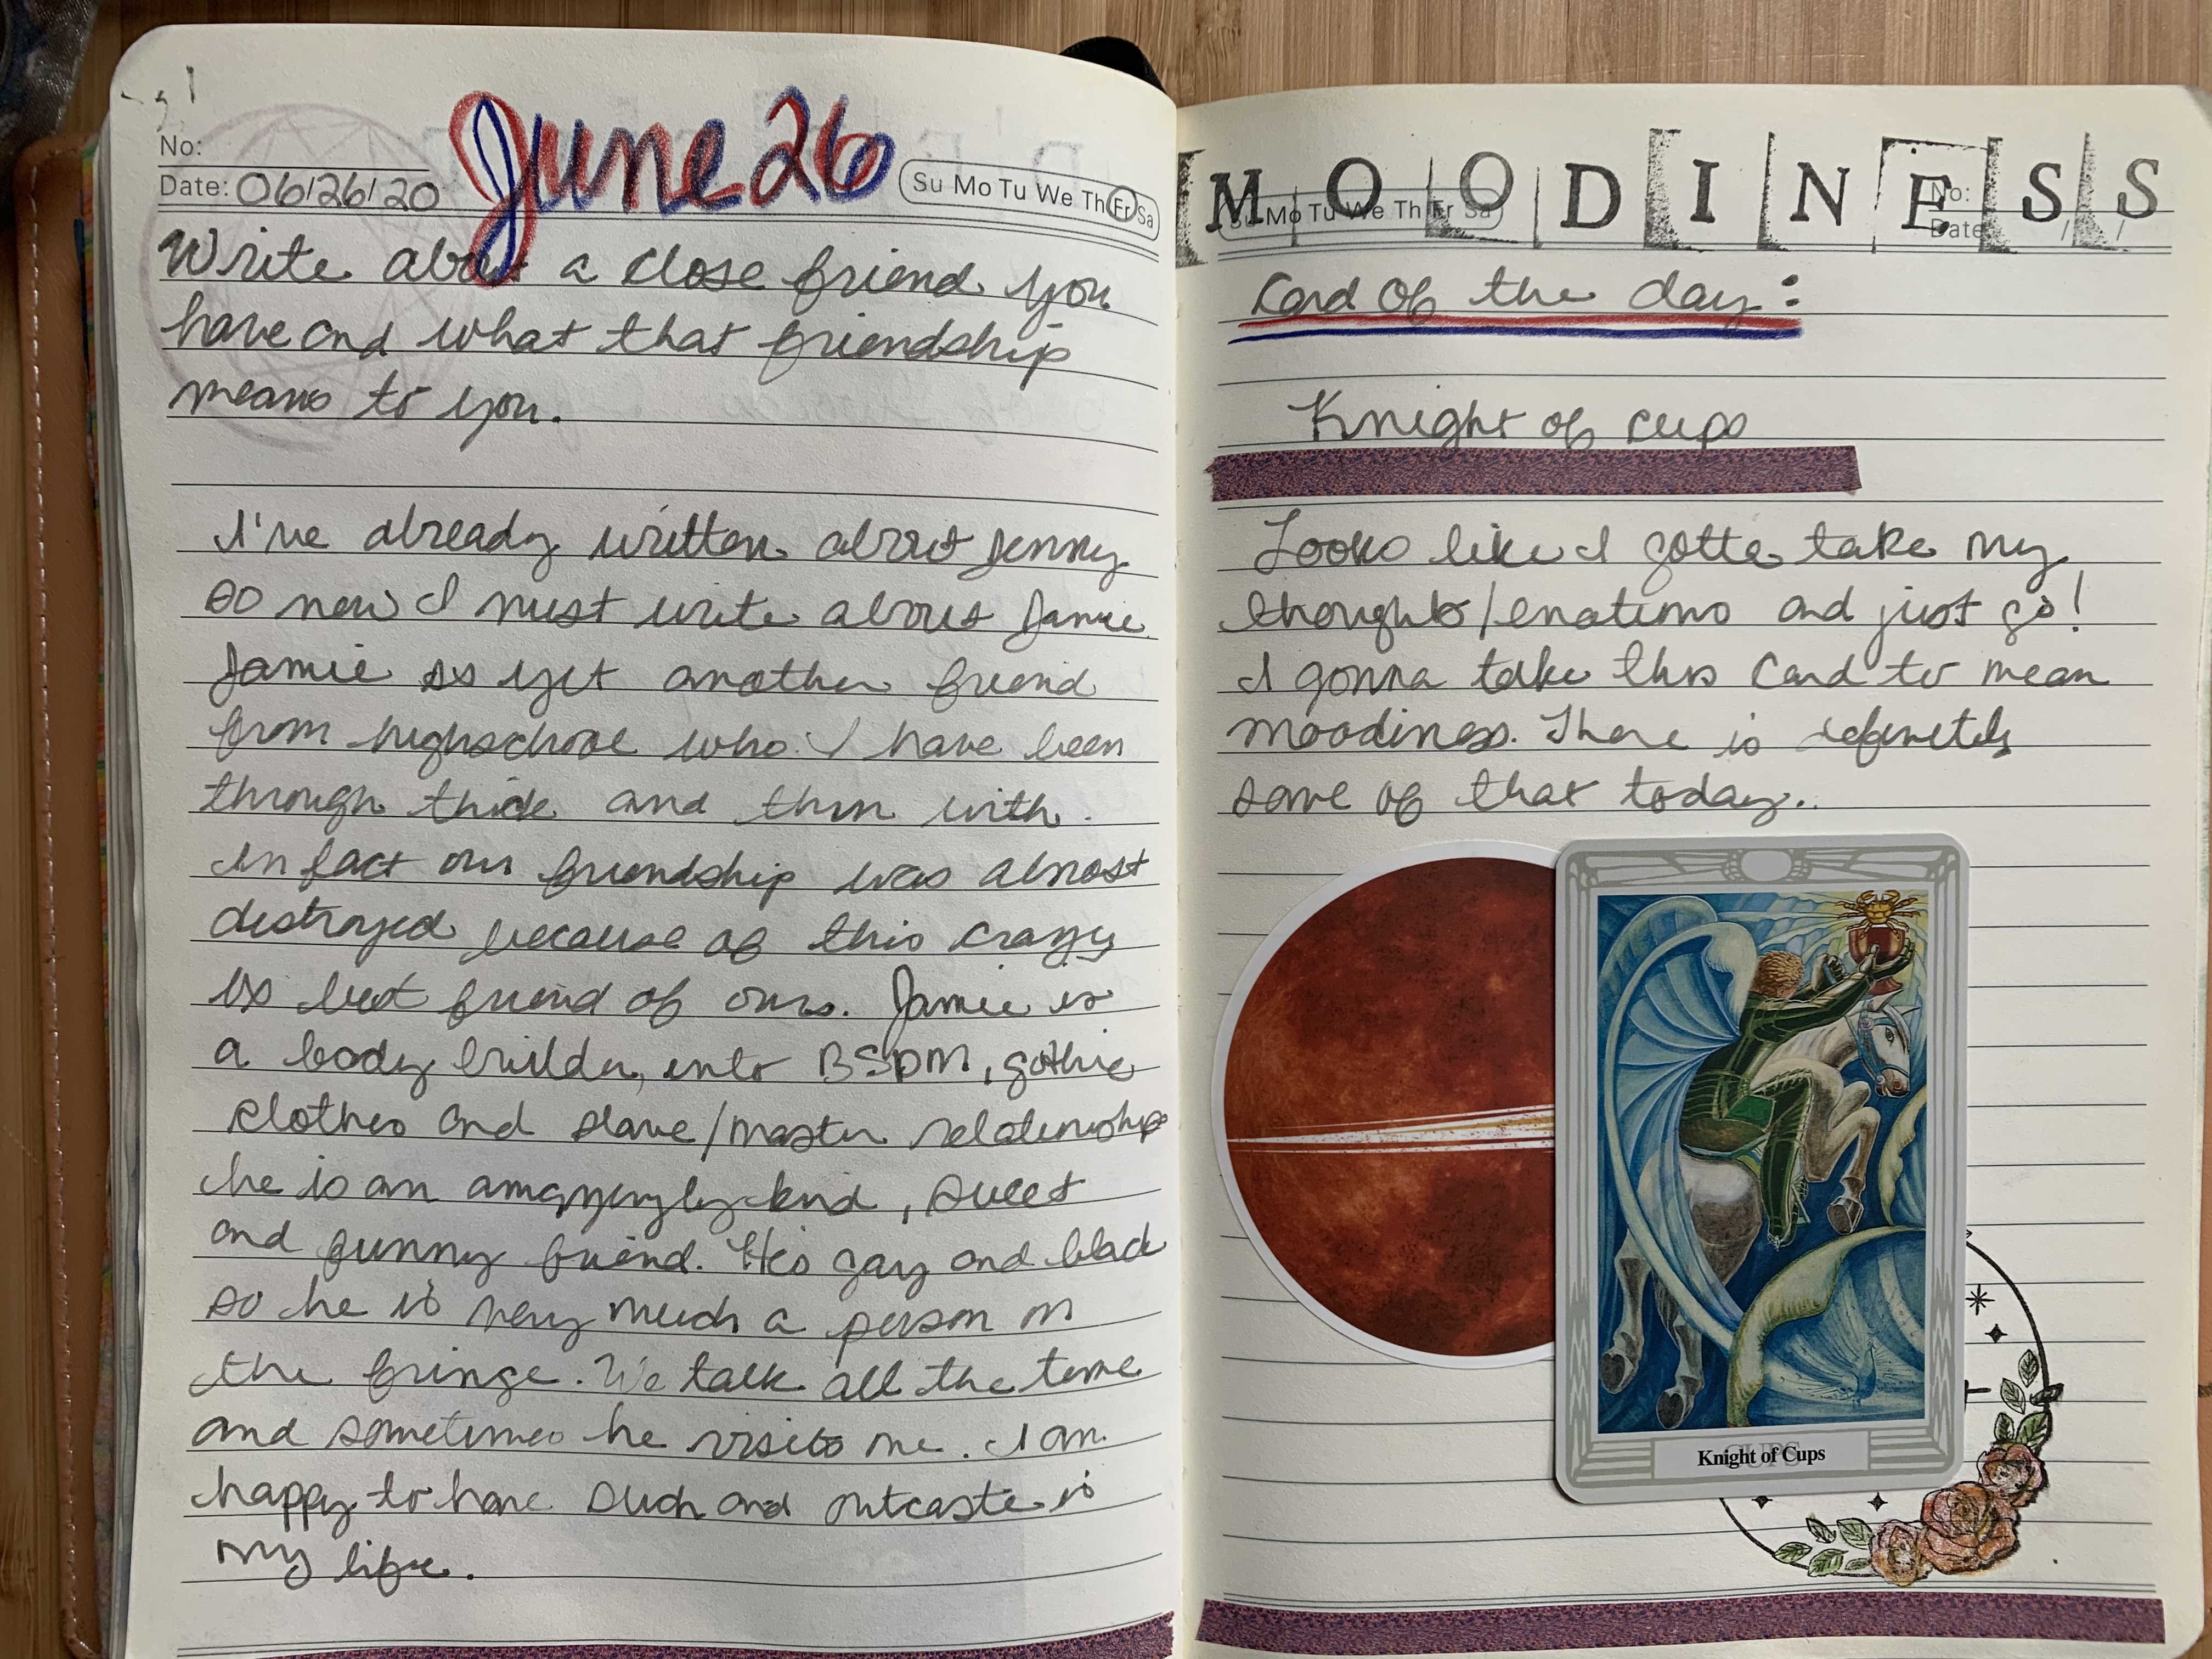 No:
Date: 06/26/20
June 26
Su Mo Tu We Th Fr Sa
Write about a close friend you
have and what that friendship
means to you.
I've already written about Jenny
so now I must write about Jamie.
Jamie is yet another friend
from highschool who I have been
through thick and thin with.
In fact our friendship was almost
destroyed because of this crazy
ex best friend of ours. Jamie is
a body builder, into BSDM, gothic
clothes and slave/master relationships
he is an amazzingly kind, sweet
and funny friend. He's gay and black
so he is very much a person on
the fringe. We talk all the time
and sometimes he visits me. I am
happy to have such and outcaste is
my life.
MOODINESS
Su Mo Tu We Th Fr Sa
No:
Date / /
Card of the day:
Knight of cups
Looks like I gotta take my
thoughts/emotions and just go!
I gonna take this card to mean
moodiness. There is definitely
some of that today.
Knight of Cups